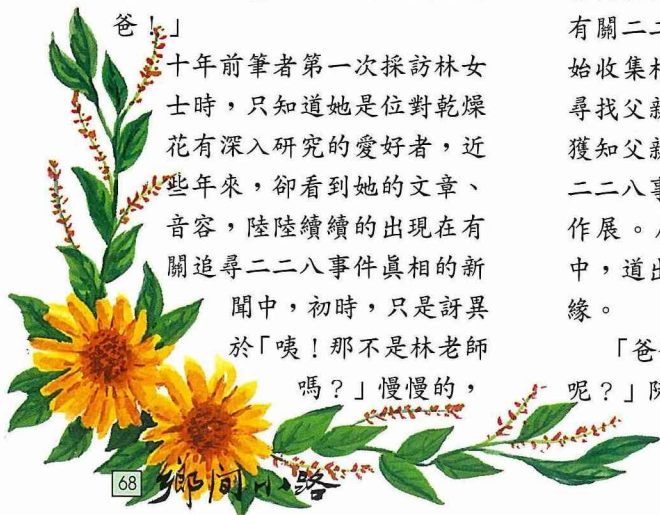 爸！」
十年前筆者第一次採訪林女
士時，只知道她是位對乾燥
花有深入研究的愛好者，近
些年來，卻看到她的文章、
音容，陸陸續續的出現在有
關追尋二二八事件眞相的新
聞中，初時，只是訝異
於「咦！那不是林老師
嗎？」慢慢的，
有關二二
始收集相
尋找父親
獲知父親
二二八事
作展。
中，道出
緣。
「爸
呢？」
68 鄉間小路